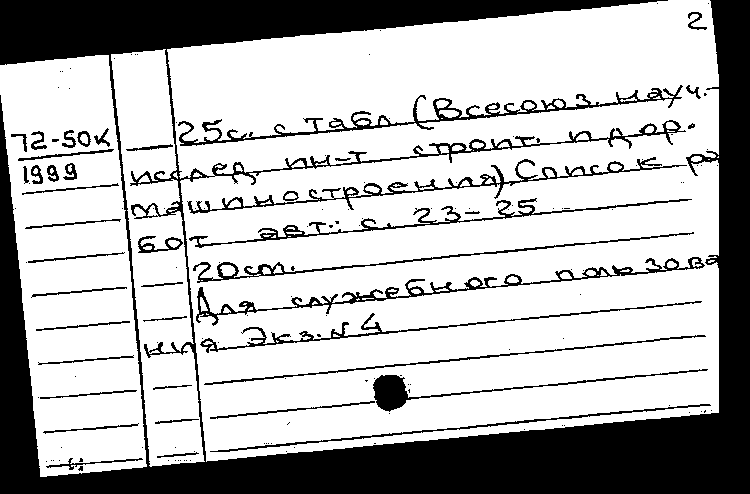 2
72-50к
1999
25с. с табл (Всесоюз. науч.-
исслед. ин-т строит. и дор.
машиностроения). Список ра
бот авт.: с. 23-25
20см.
Для служебного пользова
ния Экз. N 4